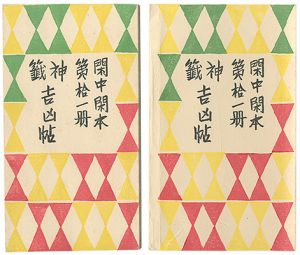 閑中閑本
第拾一册
神籤
吉凶帖
閑中閑本
第拾一册
神籤
吉凶帖